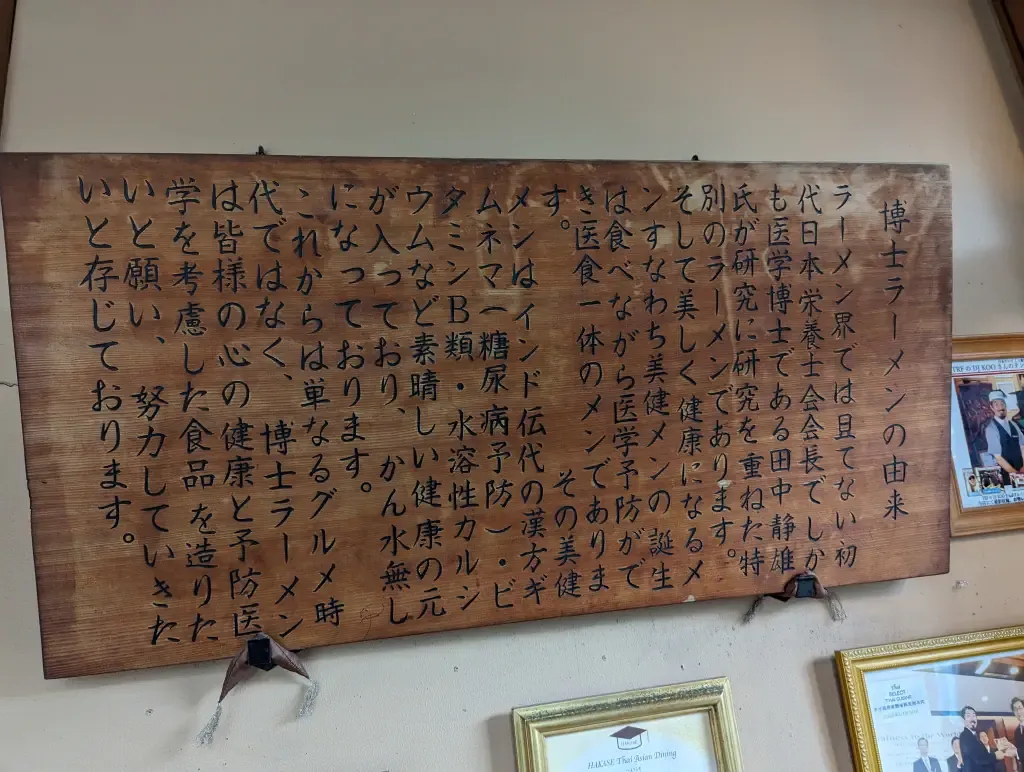 博士ラーメンの由来
ラーメン界では且てない初
代日本栄養士会会長でしか
も医学博士である田中静雄
氏が研究に研究を重ねた特
別のラーメンであります。
そして美しく健康になるメ
ンすなわち美健メンの誕生
は食べながら医学予防がで
き医食一体のメンでありま
す。　　　　　　その美健
メンはインド伝代の漢方ギ
ムネマ（糖尿病予防）・ビ
タミンB類・水溶性カルシ
ウムなど素晴しい健康の元
が入っており、かん水無し
になっております。
これからは単なるグルメ時
代ではなく、博士ラーメン
は皆様の心の健康と予防医
学を考慮した食品を造りた
いと願い、努力していきた
いと存じております。
HAKASE
HAKASE Thai Asian Dining
Thai
SELECT
THAI CUISINE